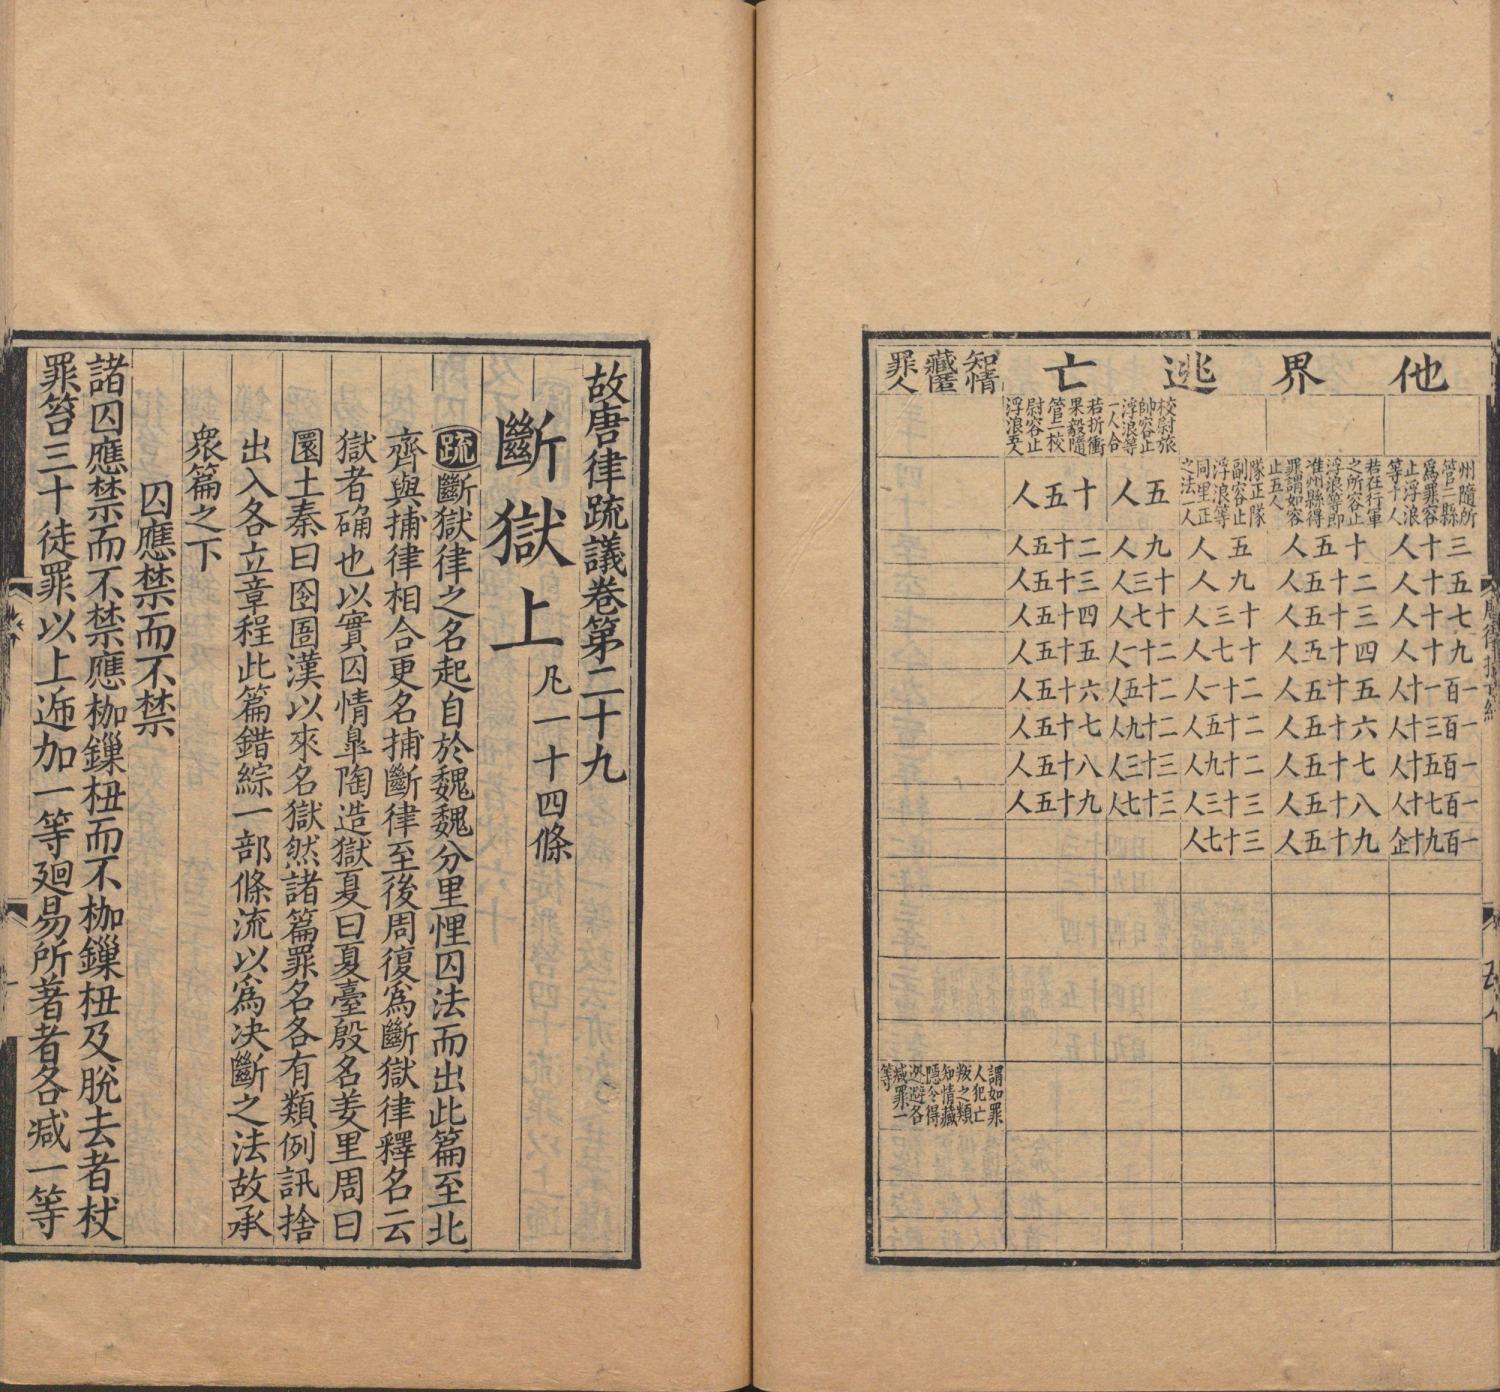 他界逃亡
知情
藏匿
罪人
校尉旅
帥容止
浮浪等
一人合
若折衝
果毅隨
管三校
尉容止
浮浪
州隨所
管二縣
爲罪容
止浮浪
等十人
若在行軍
之所容止
浮浪等即
准州縣得
罪謂如容
止五人
隊正隊
副容止
浮浪等
同里正
之法一人
五人
十五人
三十人 十五人 五人 九人 二十五人
五十人 二十五人 九人 十三人 三十五人
七十人 三十五人 十三人 十七人 四十五人
九十人 四十五人 十七人 二十一人 五十五人
一百一十人 五十五人 二十一人 二十五人 六十五人
一百三十人 六十五人 二十五人 二十九人 七十五人
一百五十人 七十五人 二十九人 三十三人 八十五人
一百七十人 八十五人 三十三人 三十七人 九十五人
一百九十 九十五人 三十七人
謂如罪
人犯亡
叛之類
知情藏
隱令得
逃避各
減罪一
等
故唐律疏議卷第二十九
斷獄上 凡一十四條
疏斷獄律之名起自於魏魏分里悝囚法而出此篇至北
齊與捕律相合更名捕斷律至後周復爲斷獄律釋名云
獄者确也以實囚情臯陶造獄夏曰夏臺殷名羑里周曰
圜土秦曰囹圄漢以來名獄然諸篇罪名各有類例訊捨
出入各立章程此篇錯綜一部條流以爲决斷之法故承
衆篇之下
囚應禁而不禁
諸囚應禁而不禁應枷鏁杻而不枷鏁杻及脫去者杖
罪笞三十徒罪以上遞加一等廻易所著者各減一等